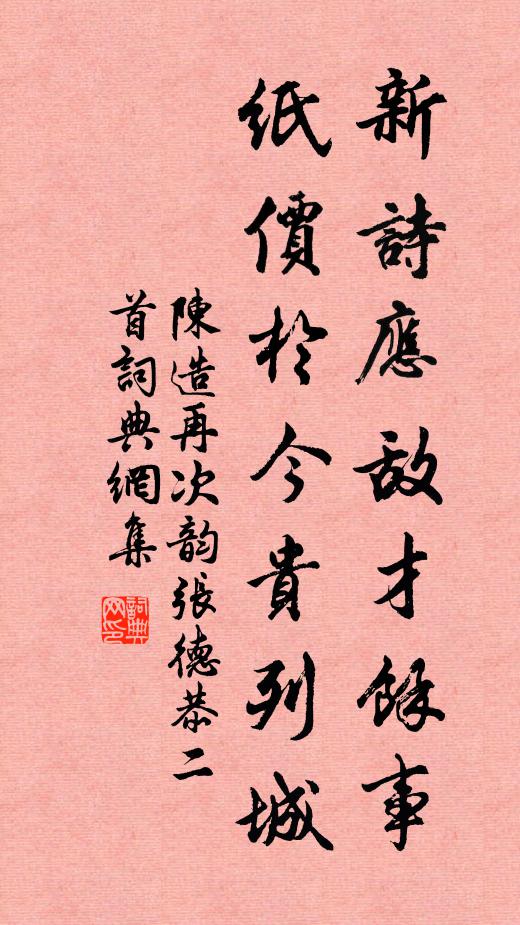 新詩應敵才餘事
紙價於今貴列城
陳造再次韵張德恭二
首詞典網集
詞典
网印